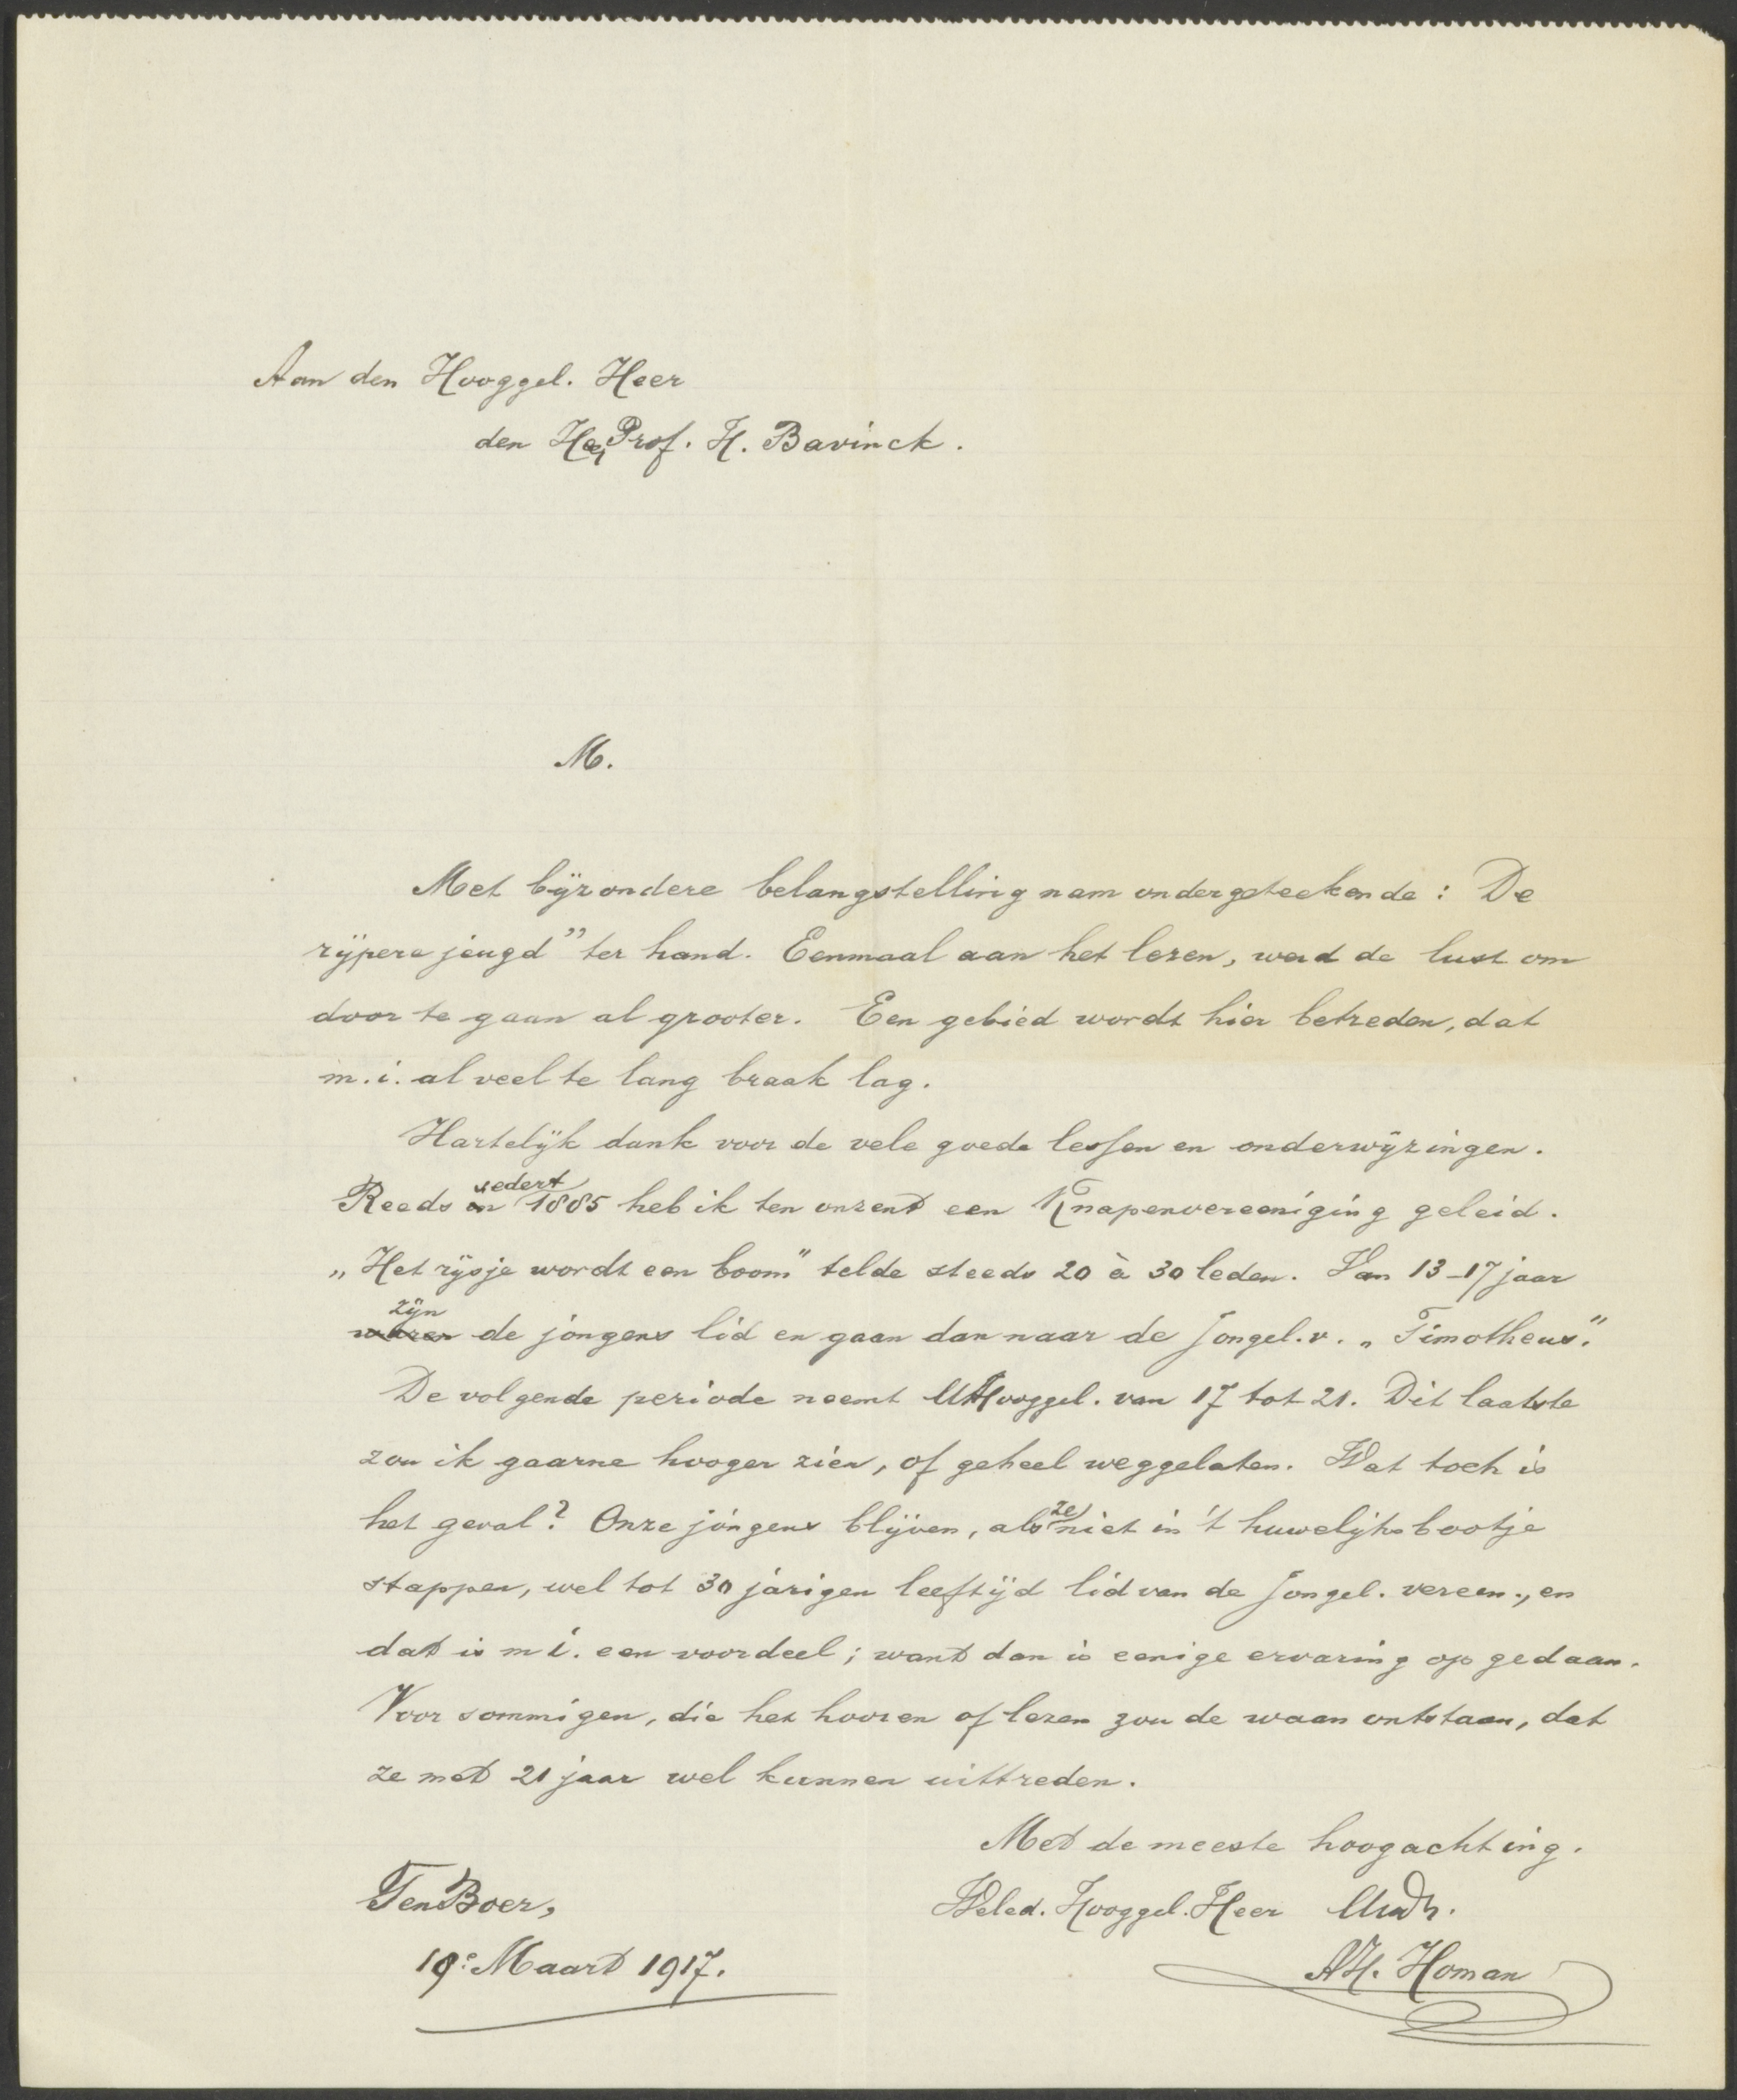 Aan den Hooggel. Heer
den Prof. H. Bavinck.
M.
Met bijzondere belangstelling nam ondergeteekende: De
rijpere jeugd" ter hand. Eenmaal aan het lezen, werd de lust om
door te gaan al grooter. Een gebied wordt hier betreden, dat
m.i. al veel te lang braak lag.
Hartelijk dank voor de vele goede lessen en onderwijzingen.
Reeds sedert 1885 heb ik ten onzent een Knapenvereeniging geleid.
„Het rijsje wordt een boom" telde steeds 20 à 30 leden. Van 13-17 jaar
zijn de jongens lid en gaan dan naar de Jongel. v. „Timotheus".
De volgende periode neemt U Hooggel. van 17 tot 21. Dit laatste
zou ik gaarne hooger zien, of geheel weggelaten. Wat toch is
het geval? Onze jongens blijven, als ze niet in 't huwelijksbootje
stappen, wel tot 30 jarigen leeftijd lid van de Jongel. vereen., en
dat is m i. een voordeel; want dan is eenige ervaring opgedaan.
Voor sommigen, die het hooren of lezen zou de waan ontstaan, dat
ze met 21 jaar wel kunnen uittreden.
Met de meeste hoogachting.
Ten Boer, Weled. Hooggel. Heer Uwdr.
19e Maart 1917. Homan